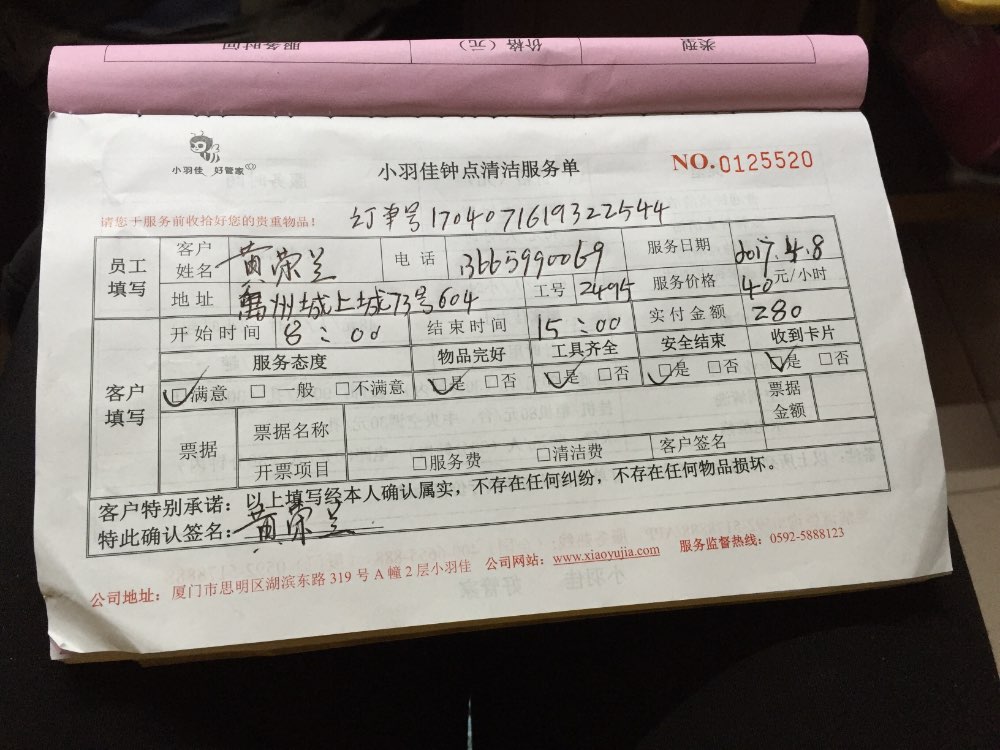 类型 价格（元） 服务时间
小羽佳 好管家
小羽佳钟点清洁服务单
NO.0125520
请您于服务前收拾好您的贵重物品！
订单号1704071619322544
员工填写 客户姓名 黄荣兰 电话 13665990069 服务日期 2017.4.8
地址 禹州城上城73号604 工号 2495 服务价格 40元/小时
客户填写 开始时间 8：00 结束时间 15：00 实付金额 280
服务态度 物品完好 工具齐全 安全结束 收到卡片
☑满意 □一般 □不满意 ☑是 □否 ☑是 □否 ☑是 □否 ☑是 □否
票据 票据名称 票据金额
开票项目 □服务费 □清洁费 客户签名
客户特别承诺：以上填写经本人确认属实，不存在任何纠纷，不存在任何物品损坏。
特此确认签名：黄荣兰
公司地址：厦门市思明区湖滨东路319号A幢2层小羽佳 公司网站：www.xiaoyujia.com 服务监督热线：0592-5888123